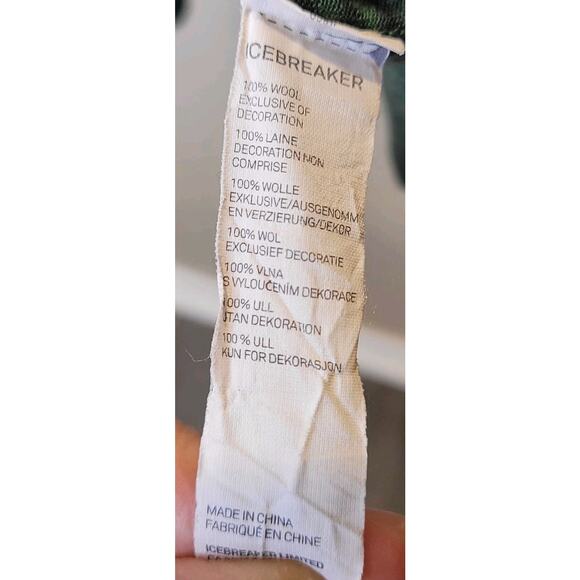 ICEBREAKER
100% WOOL
EXCLUSIVE OF
DECORATION
100% LAINE
DECORATION NON
COMPRISE
100% WOLLE
EXKLUSIVE/AUSGENOMM
EN VERZIERUNG/DEKOR
100% WOL
EXCLUSIEF DECORATIE
100% VLNA
S VYLOUČENÍM DEKORACE
100% ULL
UTAN DEKORATION
100 % ULL
KUN FOR DEKORASJON
MADE IN CHINA
FABRIQUÉ EN CHINE
ICEBREAKER LIMITED